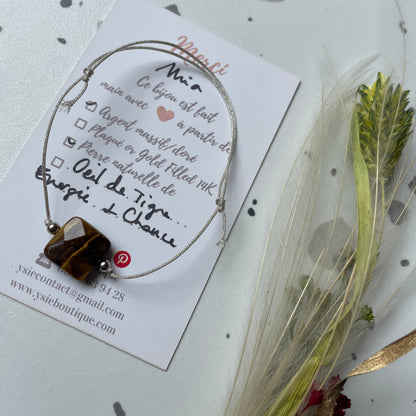 Merci
Mia
Ce bijou est fait
main avec à partir de
Argent massif/doré
Plaqué or, gold Filled 14K
Pierre naturelle de
Oeil de Tigre...
Énergie + Chance
94 28
ysiecontact@gmail.com
www.ysieboutique.com